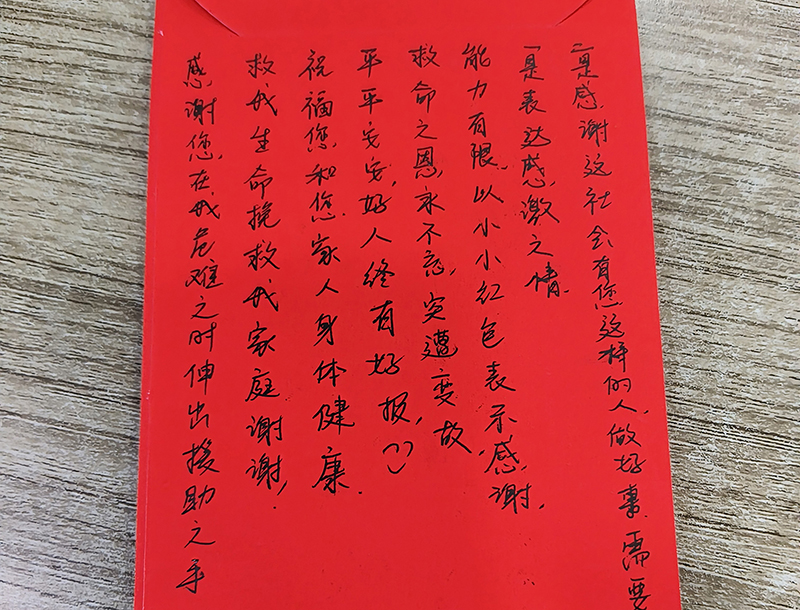 感谢您在我危难之时伸出援助之手
救我生命挽救我家庭谢谢,
祝福您和您家人身体健康.
平平安安,好人终有好报,
救命之恩,永不忘,突遭变故,
能力有限.以小小红色表示感谢,
一是表达感激之情.
二是感谢这社会有您这样的人,做好事.需要